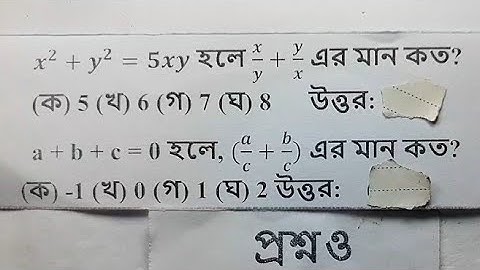 x² + y² = 5xy হলে x/y + y/x এর মান কত?
(ক) 5 (খ) 6 (গ) 7 (ঘ) 8 উত্তর:
a + b + c = 0 হলে, (a/c + b/c) এর মান কত?
(ক) -1 (খ) 0 (গ) 1 (ঘ) 2 উত্তর:
প্রশ্ন ও